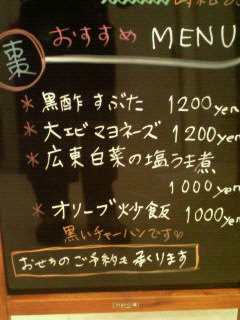 棗
おすすめ MENU
* 黒酢 すぶた 1200yen
* 大エビマヨネーズ 1200yen
* 広東白菜の塩うま煮
1000yen
* オソーブ炒飯 1000yen
黒いチャーハンです♡
おせちのご予約も承ります